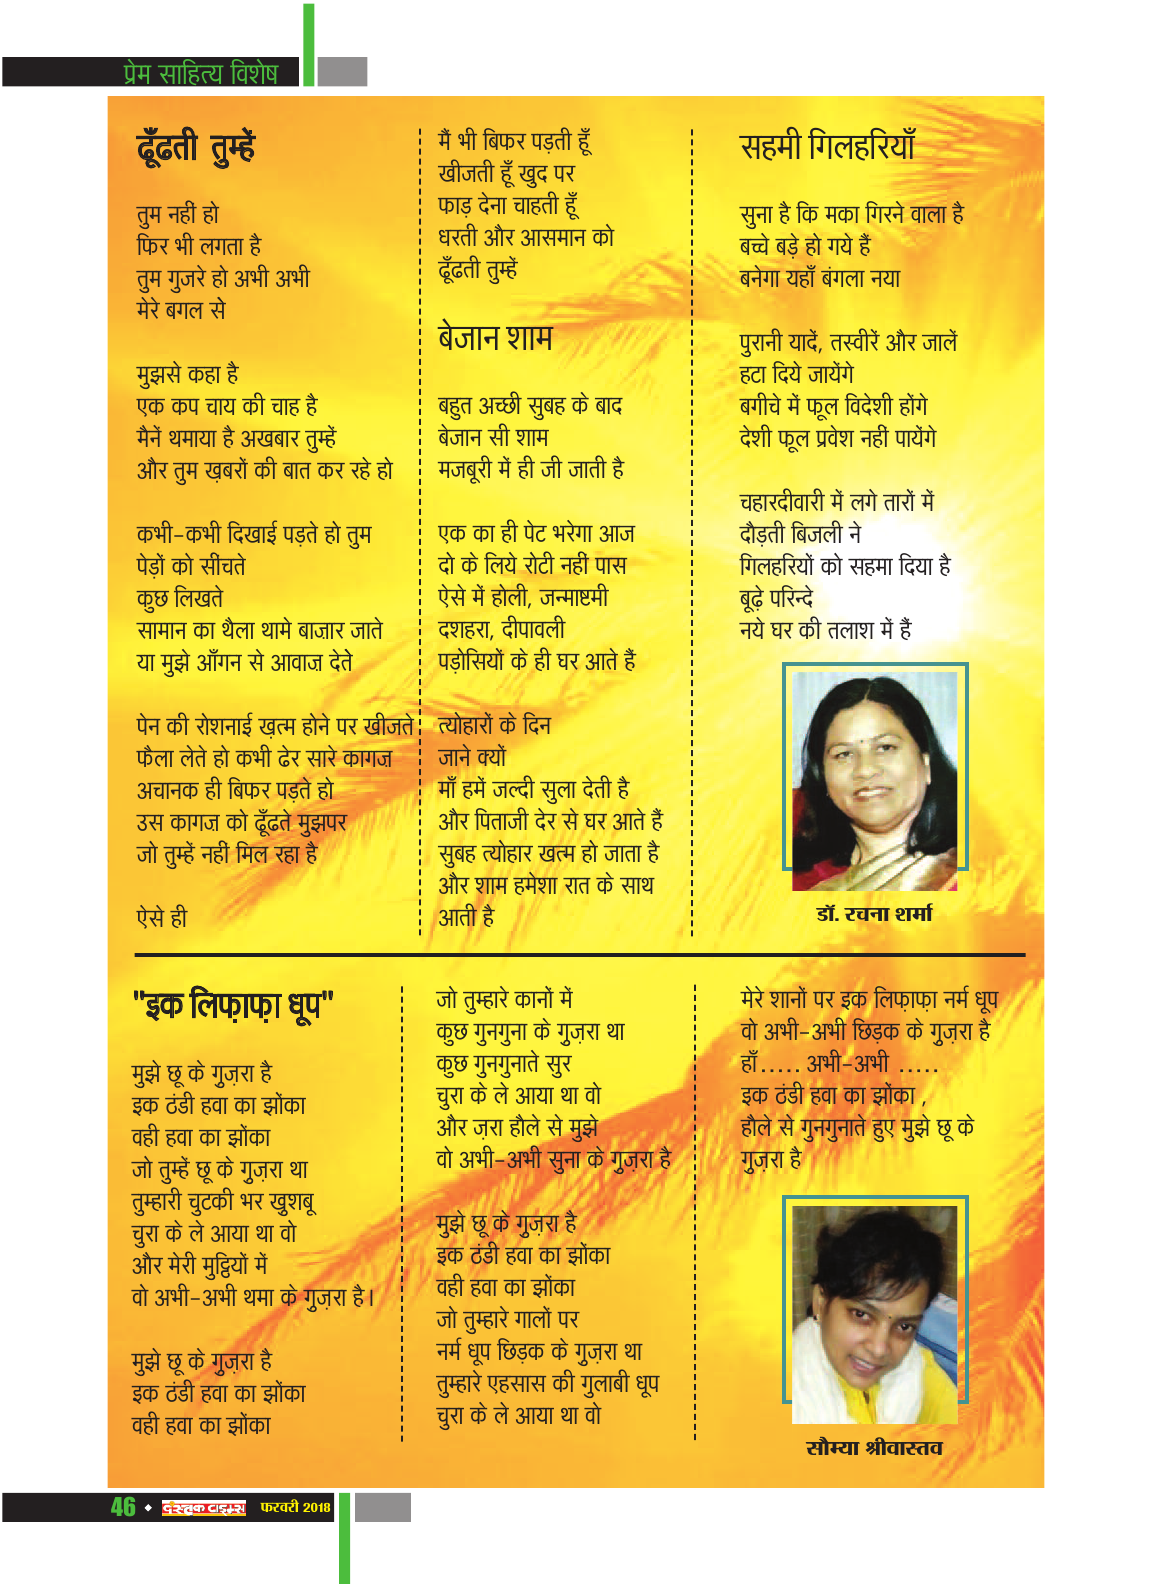 प्रेम साहित्य विशेष
ढूँढती तुम्हें
तुम नहीं हो
फिर भी लगता है
तुम गुजरे हो अभी अभी
मेरे बगल से
मुझसे कहा है
एक कप चाय की चाह है
मैनें थमाया है अखबार तुम्हें
और तुम ख़बरों की बात कर रहे हो
कभी-कभी दिखाई पड़ते हो तुम
पेड़ों को सींचते
कुछ लिखते
सामान का थैला थामे बाजार जाते
या मुझे आँगन से आवाज़ देते
पेन की रोशनाई ख़त्म होने पर खीजते
फैला लेते हो कभी ढेर सारे कागज़
अचानक ही बिफर पड़ते हो
उस कागज़ को ढूँढते मुझपर
जो तुम्हें नहीं मिल रहा है
ऐसे ही
मैं भी बिफर पड़ती हूँ
खीजती हूँ खुद पर
फाड़ देना चाहती हूँ
धरती और आसमान को
ढूँढती तुम्हें
बेजान शाम
बहुत अच्छी सुबह के बाद
बेजान सी शाम
मजबूरी में ही जी जाती है
एक का ही पेट भरेगा आज
दो के लिये रोटी नहीं पास
ऐसे में होली, जन्माष्टमी
दशहरा, दीपावली
पड़ोसियों के ही घर आते हैं
त्योहारों के दिन
जाने क्यों
माँ हमें जल्दी सुला देती है
और पिताजी देर से घर आते हैं
सुबह त्योहार खत्म हो जाता है
और शाम हमेशा रात के साथ
आती है
सहमी गिलहरियाँ
सुना है कि मका गिरने वाला है
बच्चे बड़े हो गये हैं
बनेगा यहाँ बंगला नया
पुरानी यादें, तस्वीरें और जालें
हटा दिये जायेंगे
बगीचे में फूल विदेशी होंगे
देशी फूल प्रवेश नहीं पायेंगे
चहारदीवारी में लगे तारों में
दौड़ती बिजली ने
गिलहरियों को सहमा दिया है
बूढ़े परिन्दे
नये घर की तलाश में हैं
डॉ. रचना शर्मा
"इक लिफ़ाफ़ा धूप"
मुझे छू के गुज़रा है
इक ठंडी हवा का झोंका
वही हवा का झोंका
जो तुम्हें छू के गुज़रा था
तुम्हारी चुटकी भर खुशबू
चुरा के ले आया था वो
और मेरी मुट्ठियों में
वो अभी-अभी थमा के गुज़रा है।
मुझे छू के गुज़रा है
इक ठंडी हवा का झोंका
वही हवा का झोंका
जो तुम्हारे कानों में
कुछ गुनगुना के गुज़रा था
कुछ गुनगुनाते सुर
चुरा के ले आया था वो
और ज़रा हौले से मुझे
वो अभी-अभी सुना के गुज़रा है
मुझे छू के गुज़रा है
इक ठंडी हवा का झोंका
वही हवा का झोंका
जो तुम्हारे गालों पर
नर्म धूप छिड़क के गुज़रा था
तुम्हारे एहसास की गुलाबी धूप
चुरा के ले आया था वो
मेरे शानों पर इक लिफ़ाफ़ा नर्म धूप
वो अभी-अभी छिड़क के गुज़रा है
हाँ..... अभी-अभी .....
इक ठंडी हवा का झोंका ,
हौले से गुनगुनाते हुए मुझे छू के
गुज़रा है
सौम्या श्रीवास्तव
46 ◆ दस्तक टाइम्स फरवरी 2018